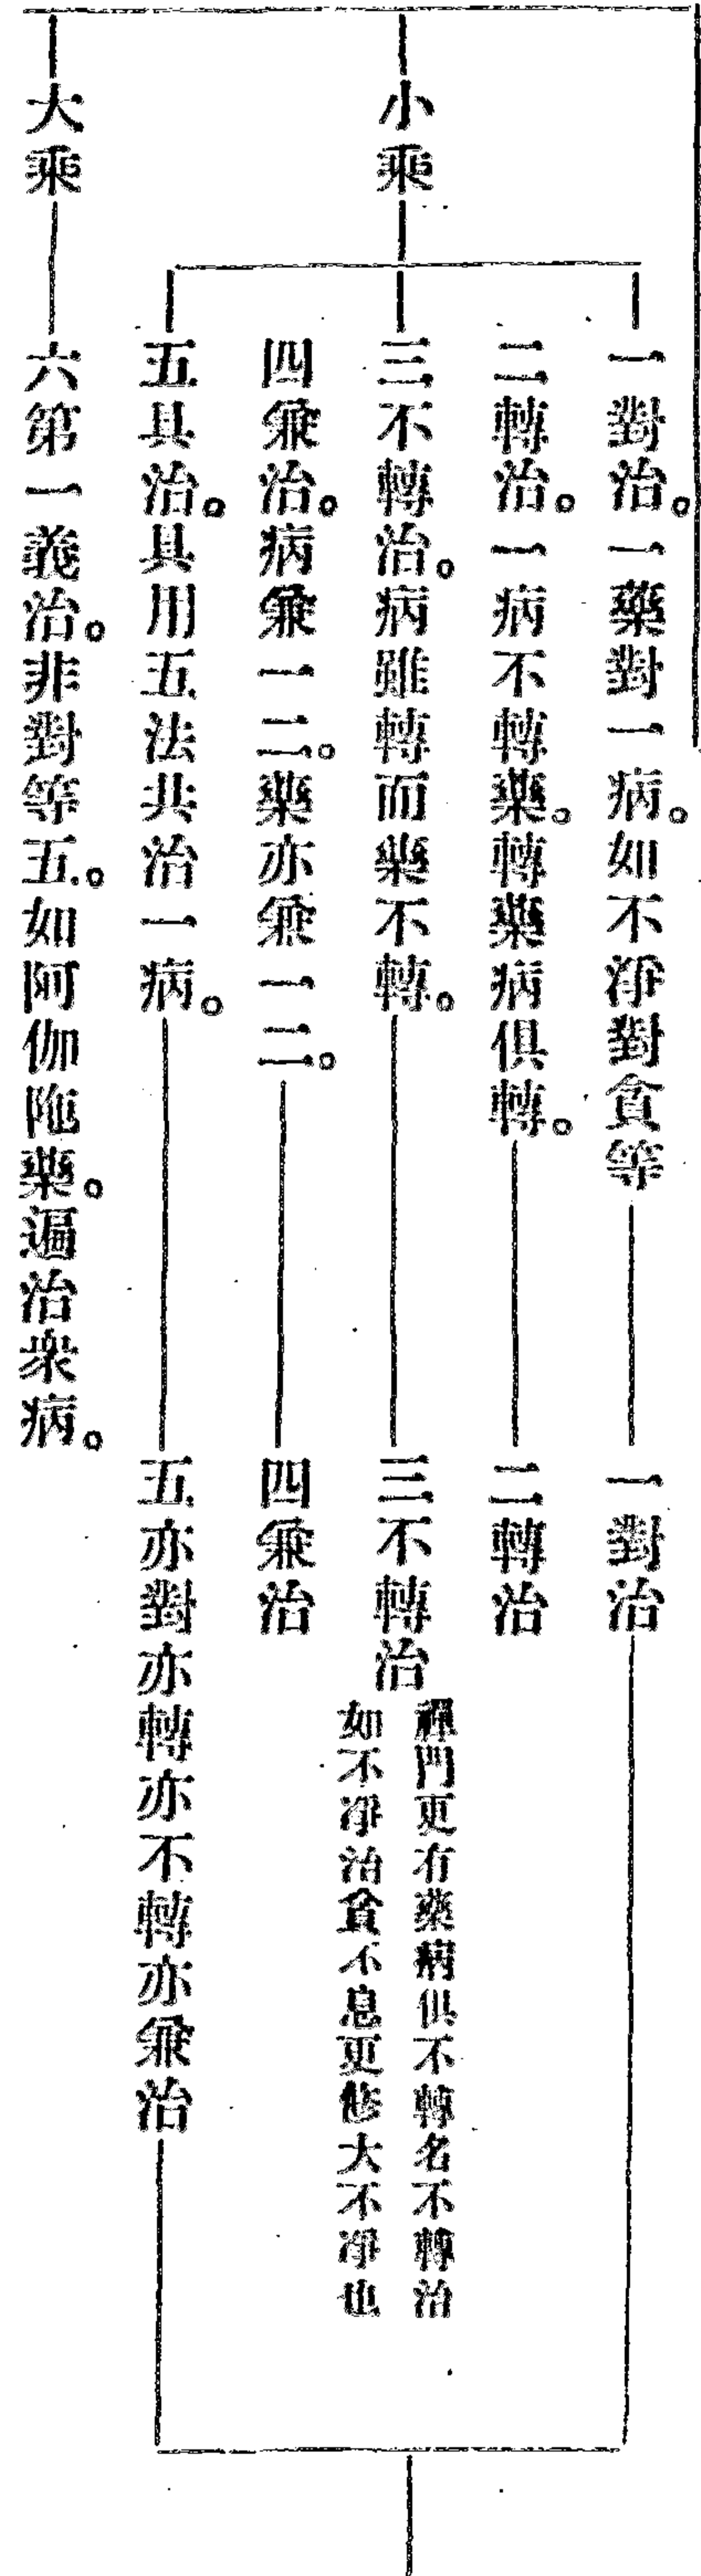 小乘
一對治。一藥對一病。如不淨對貪等
二轉治。一病不轉藥。轉藥病俱轉。
三不轉治。病雖轉而藥不轉。
四兼治。病兼一二。藥亦兼一二。
五具治。具用五法共治一病。
大乘
六第一義治。非對等五。如阿伽陁藥。遍治衆病。
一對治
二轉治
三不轉治
禪門更有藥病俱不轉名不轉治
如不淨治貪不息更修大不淨也
四兼治
五亦對亦轉亦不轉亦兼治